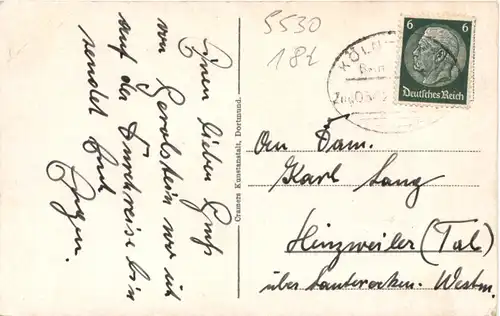 5530
18t
Einen lieben Gruß
von Gerolstein wo ich
auf der Durchreise bin
sendet Euch
Eugen.
Cramers Kunstanstalt, Dortmund.
KÖLN
6 6
Deutsches Reich
An Fam.
Karl Lang
Hinzweiler (Tal)
über Lauterecken. Westm.